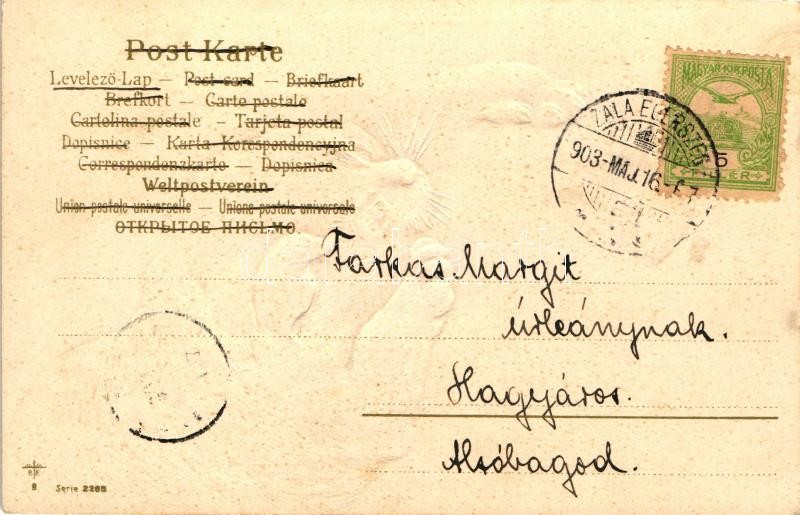 Post Karte
Levelező-Lap — Post card — Briefkaart
Brefkort — Carte postale
Cartolina postale — Tarjeta postal
Dopisnice — Karta Korespondencyjna
Correspondenzkarte — Dopisnica
Weltpostverein
Union postale universelle — Unione postale universale
ОТКРЫТОЕ ПИСЬМО.
MAGYAR·KIR·POSTA
5
FILLÉR
ZALA EGERSZEG
903-MÁJ.16
Farkas Margit
úrleánynak.
Hagyáros.
Alsóbagod.
9
Serie 2285